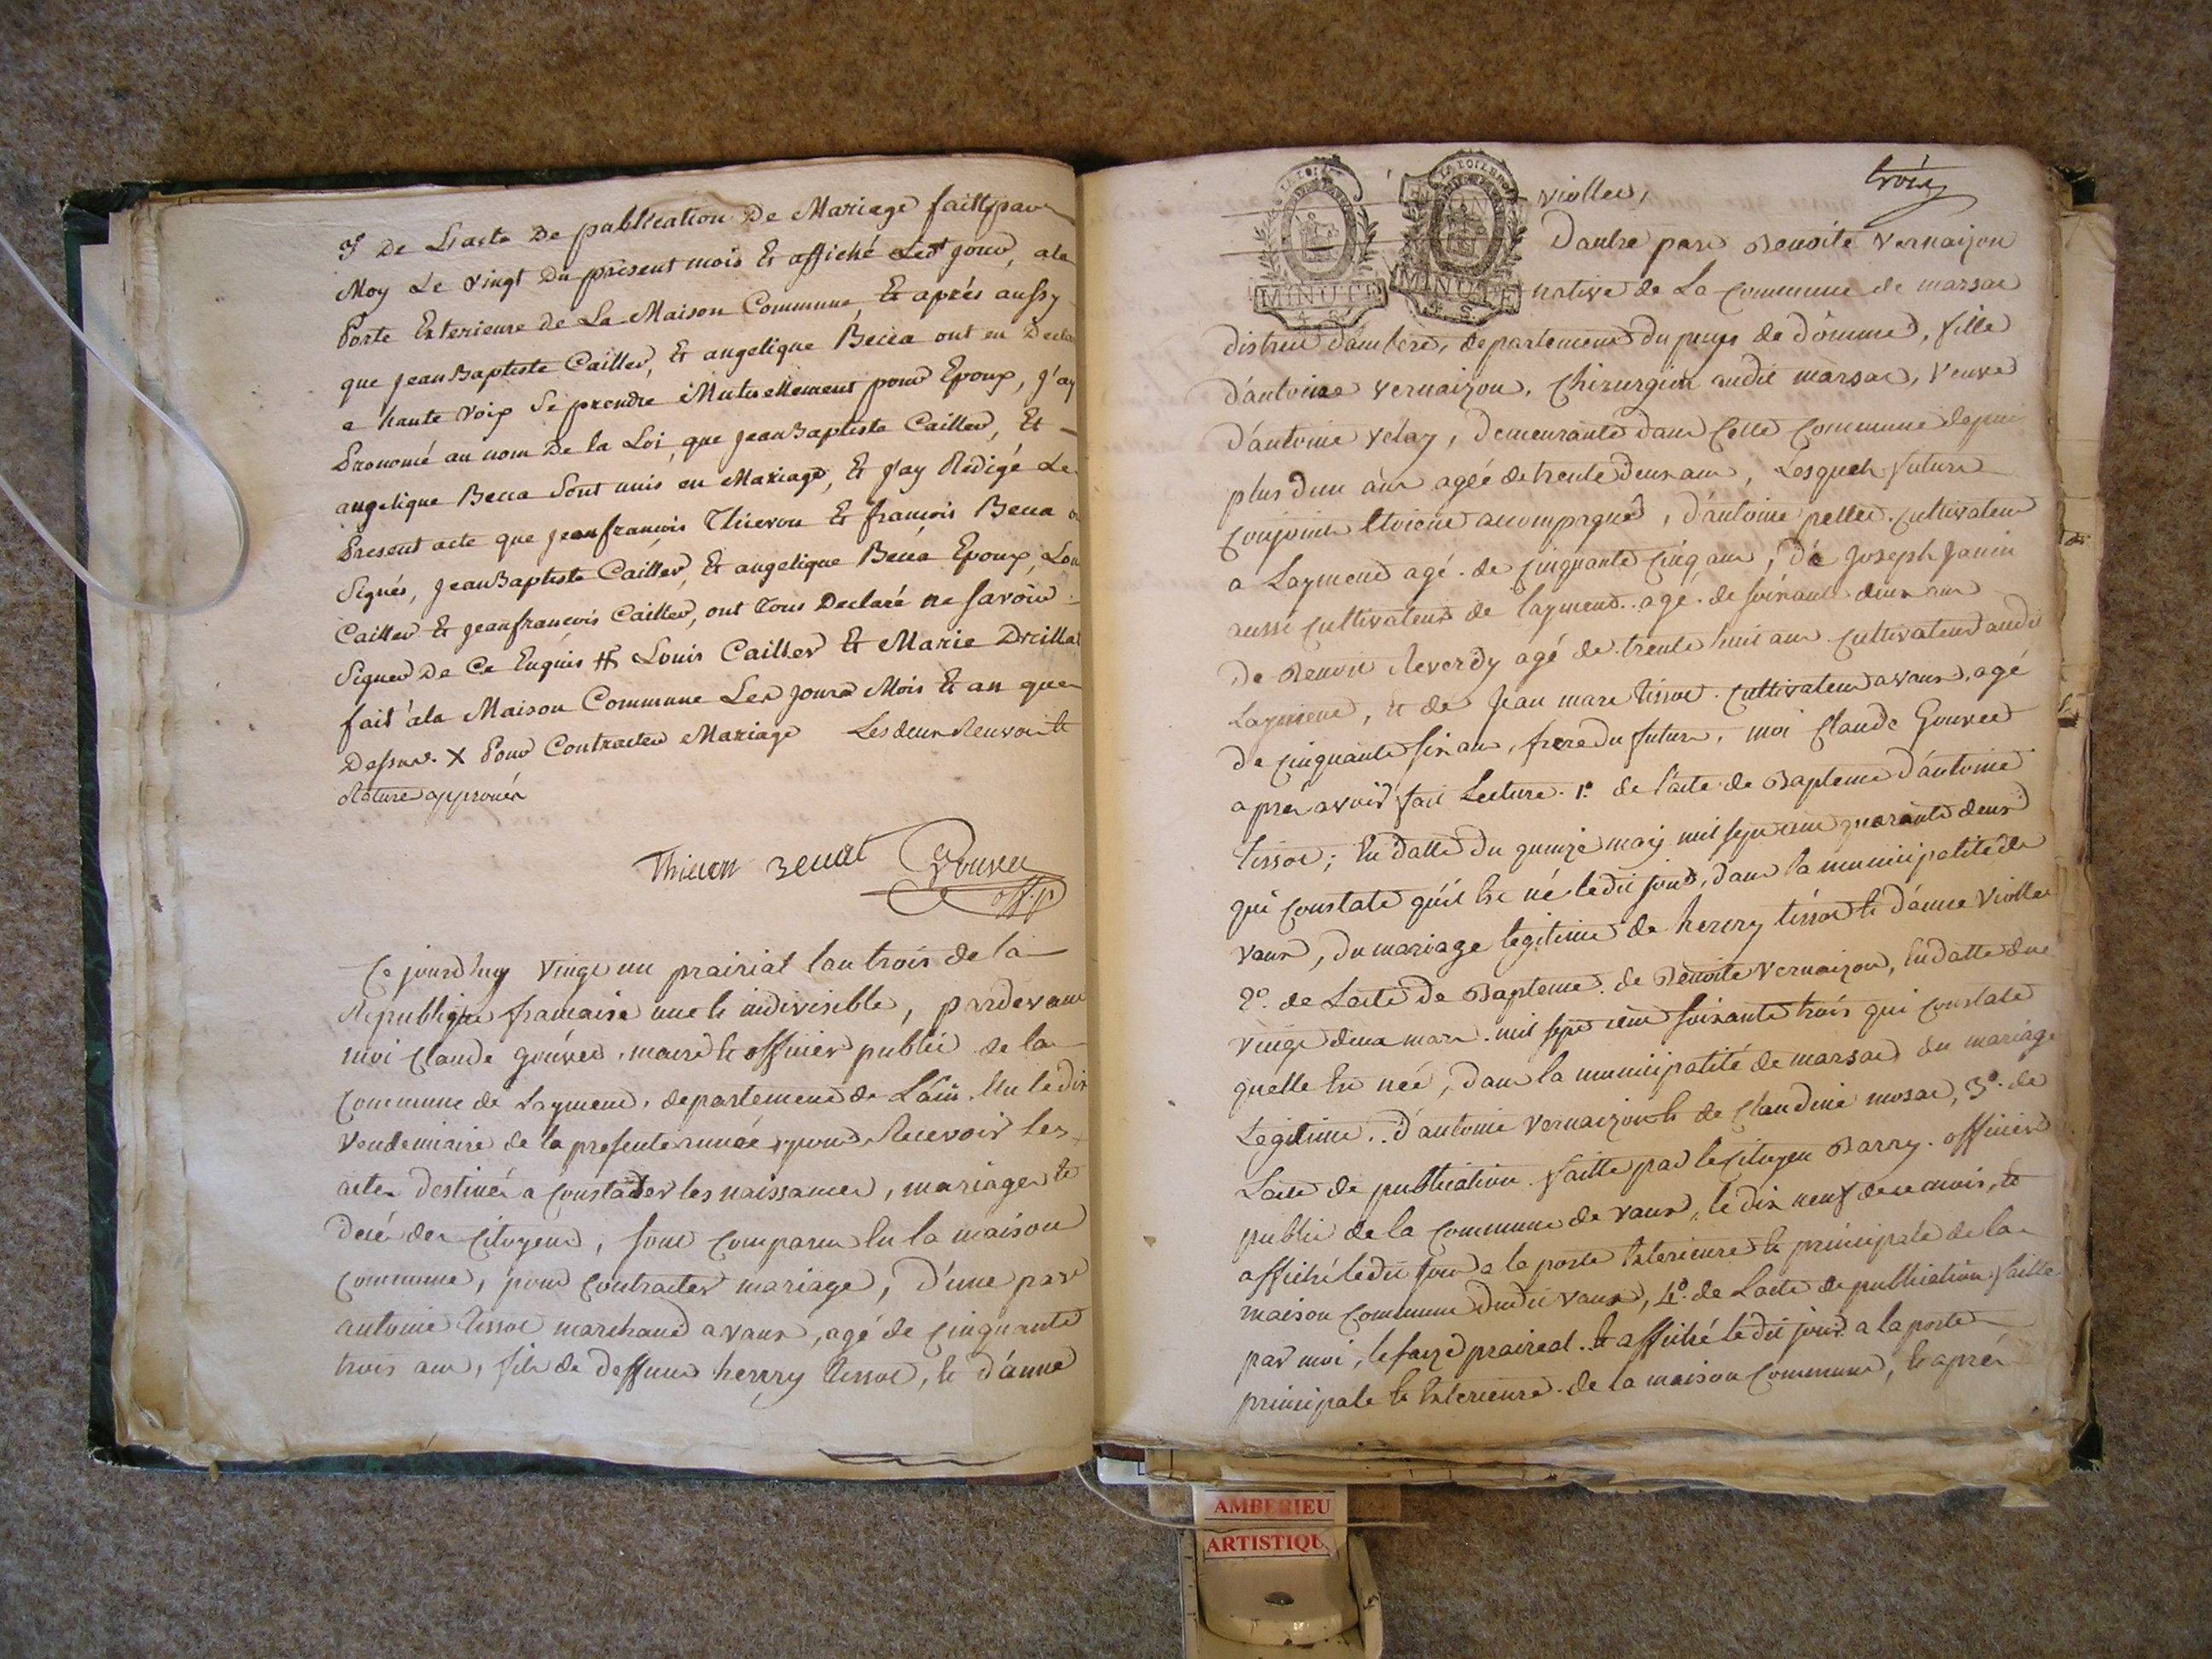 3° De L'acte De publication De Mariage faitte par
Moy Le vingt Du présent mois Et affiché Led.t jour, ala
Porte Exterieure De La Maison Commune, Et après aussy
que JeanBaptiste Cailler, Et angelique Becca ont eu Decla
a haute voix Se prendre Mutuellement pour Epoux, J'ay
Prononcé au nom De la Loi, que JeanBaptiste Cailler, Et
angelique Becca Sont unis en Mariage, Et J'ay Rédigé Le
Present acte que jeanfrancois Thievon Et francois Becca
Signés, JeanBaptiste Cailler, Et angelique Becca Epoux, Lou
Cailler Et Jeanfrancois Cailler, ont Tous Declaré ne Savoir
Signer De Ce Enquis # Louis Cailler Et Marie Drilla
fait à la Maison Commune Les Jours Mois Et an que
Dessus. X Pour Contracter Mariage Les deux Renvoi et
Rature approuvés
Thievon Becca Gouvee
off. p
Ce jourd'huy vingt un prairial l'an trois de la
Republique francaise une et indivisible, pardevant
moi Claude gouvee, maire et officier public de la
Commune de Layment, departement de L'ain, élu le dix
vendemiaire de la presente année, pour Recevoir les
actes destinés a Constater les naissances, mariages et
decés des Citoyens, sont Comparus En la maison
Commune, pour Contracter mariage, D'une part
antoine tissot marchand a vaux, agé de Cinquante
trois ans, fils de deffunt henry tissot, et d'anne
trois
viollet,
D'autre part Benoite Vernaizon
native de La Commune de marsac
district d'ambert, departement du puys de dôme, fille
d'antoine vernaizon, Chirurgien audit marsac, veuve
d'antoine velay, demeurante dans Cette Commune depuis
plus d'un an agée de trente deux ans, Lesquels futurs
Conjoints Etoient accompagnés, d'antoine pellet Cultivateur
a Layment agé de Cinquante Cinq ans, de Joseph Janin
aussi Cultivateur de layment agé de soixante deux ans
de Benoit Reverdy agé de trente huit ans Cultivateur audit
Layment, et de Jean marc tissot Cultivateur a vaux, agé
de Cinquante six ans, frere du futur, moi Claude Gouvee
après avoir fait Lecture 1° de l'acte de Bapteme d'antoine
tissot; En datte du quinze may mil sept cent quarante deux
qui Constate qu'il Est né ledit jour, dans la municipalité de
vaux, du mariage legitime de henry tissot et d'anne viollet
2° de L'acte de Bapteme de Benoite Vernaizon, En datte du
vingt deux mars mil sept cent soixante trois qui Constate
quelle Est née, dans la municipalité de marsac du mariage
Legitime d'antoine Vernaizon et de Claudine mosac, 3° de
L'acte de publication faitte par le Citoyen Barry officier
public de la Commune de vaux, le dix neuf de ce mois, et
affiché ledit jour a la porte Exterieure et principale de la
maison Commune dudit vaux, 4° de L'acte de publication faitte
par moi, le seize prairial et affiché ledit jour a la porte
principale et Exterieure de la maison Commune, et après
MINUTE
4 S.
MINUTE
AMBERIEU
ARTISTIQU